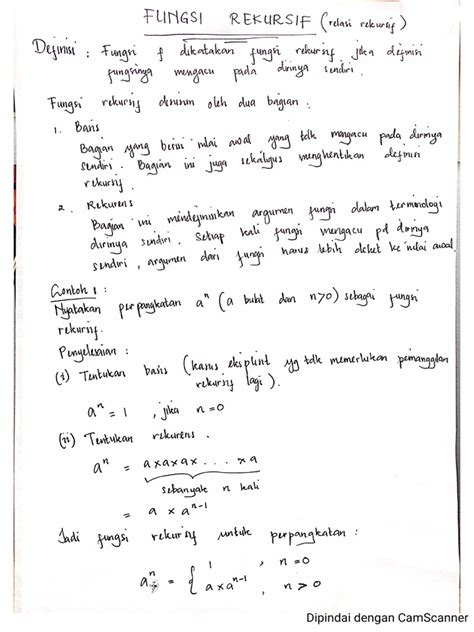 FUNGSI REKURSIF (relasi rekursif)
Definisi : Fungsi f dikatakan fungsi rekursif jika definisi
fungsinya mengacu pada dirinya sendiri.
Fungsi rekursif disusun oleh dua bagian :
1. Basis
Bagian yang berisi nilai awal yang tdk mengacu pada dirinya
sendiri. Bagian ini juga sekaligus menghentikan definisi
rekursif.
2. Rekurens
Bagian ini mendefinisikan argumen fungsi dalam terminologi
dirinya sendiri. Setiap kali fungsi mengacu pd dirinya
sendiri, argumen dari fungsi harus lebih dekat ke nilai awal.
Contoh 1 :
Nyatakan perpangkatan aⁿ (a bulat dan n>0) sebagai fungsi
rekursif.
Penyelesaian :
(i) Tentukan basis (kasus eksplisit yg tdk memerlukan pemanggilan
rekursif lagi).
aⁿ = 1 , jika n = 0
(ii) Tentukan rekurens.
aⁿ = a x a x a x . . . x a
sebanyak n kali
= a x aⁿ⁻¹
Jadi fungsi rekursif untuk perpangkatan :
aⁿ = { 1 , n = 0
a x aⁿ⁻¹ , n > 0
Dipindai dengan CamScanner